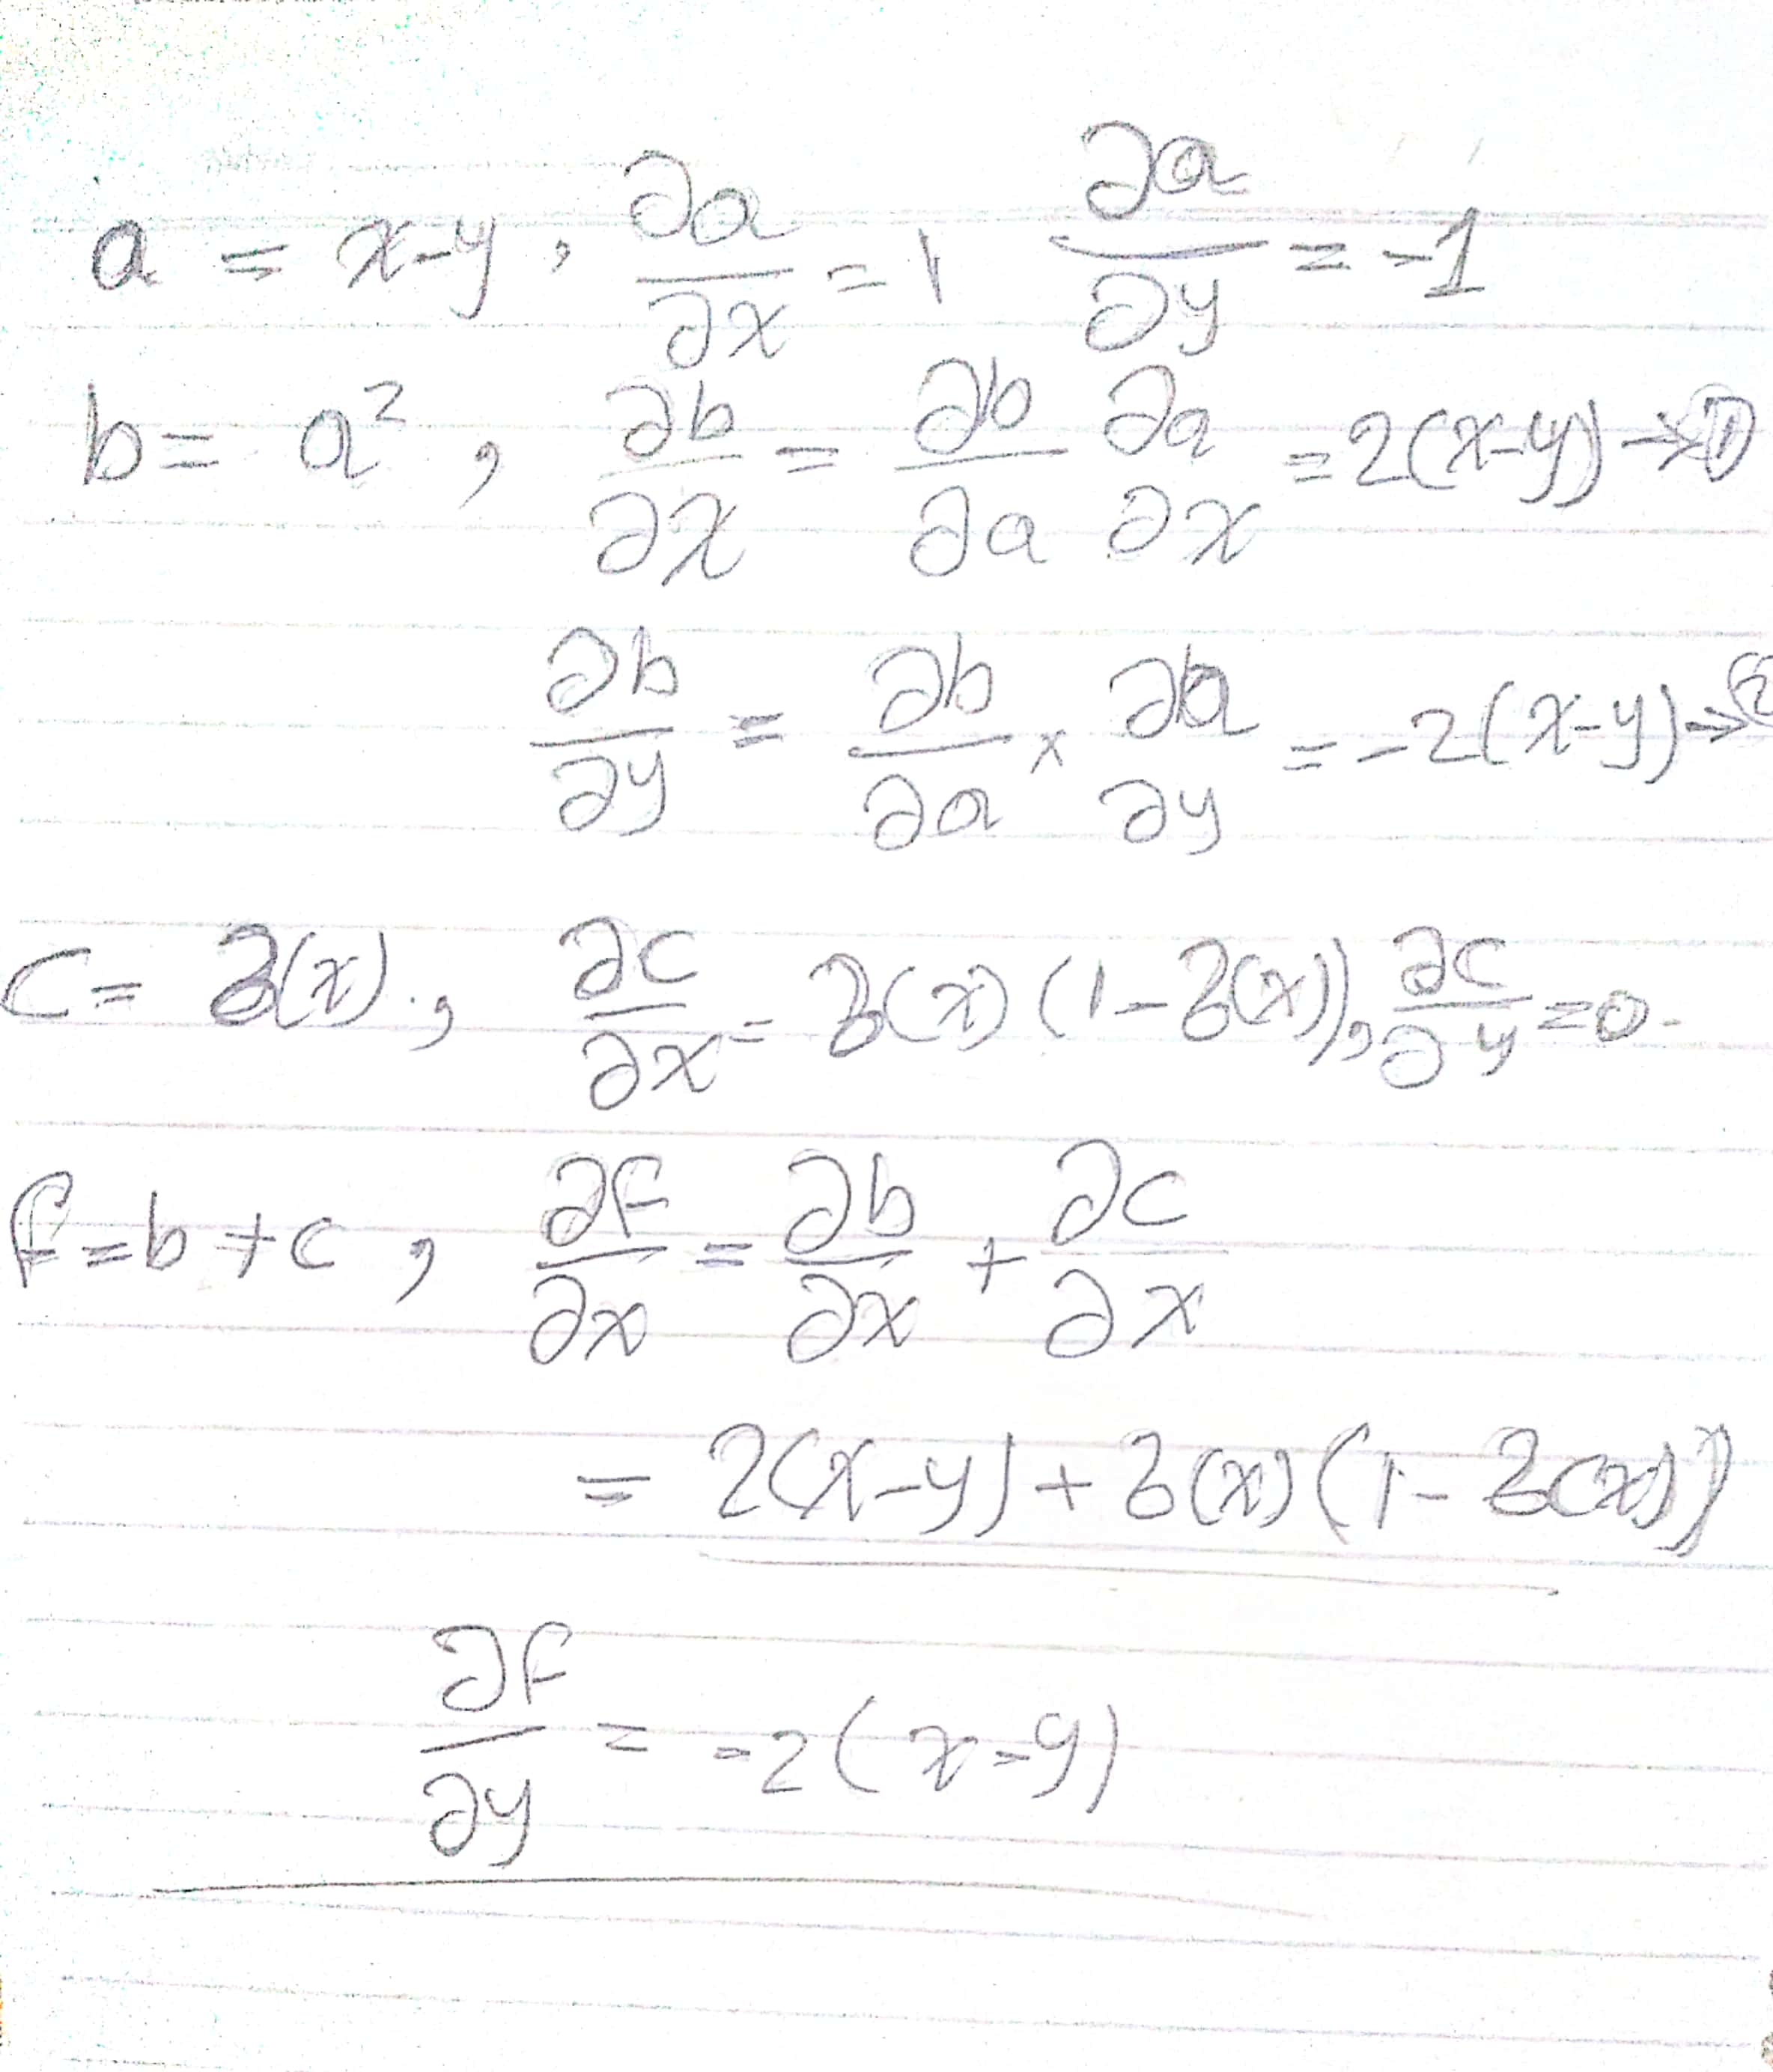 a = x-y, ∂a/∂x = 1 ∂a/∂y = -1
b = a², ∂b/∂x = ∂b/∂a ∂a/∂x = 2(x-y) → ①
∂b/∂y = ∂b/∂a × ∂a/∂y = -2(x-y) → ②
c = 3(x)., ∂c/∂x = 3(x)(1-3(x)), ∂c/∂y = 0.
f = b+c, ∂f/∂x = ∂b/∂x + ∂c/∂x
= 2(x-y) + 3(x)(1-3(x))
∂f/∂y = -2(x-y)